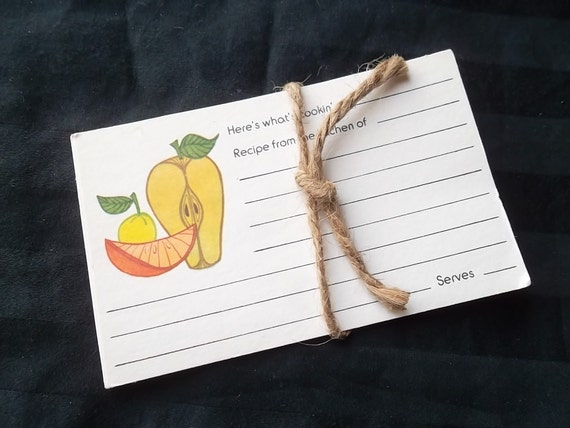 Here's what's cookin'
Recipe from the kitchen of
Serves